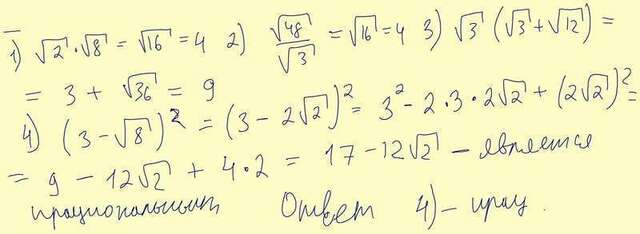 1) √2 · √8 = √16 = 4 2) √48/√3 = √16 = 4 3) √3 (√3 + √12) =
= 3 + √36 = 9
4) (3 - √8)² = (3 - 2√2)² = 3² - 2·3·2√2 + (2√2)² =
= 9 - 12√2 + 4·2 = 17 - 12√2 - является
иррациональным Ответ 4) - ирац.